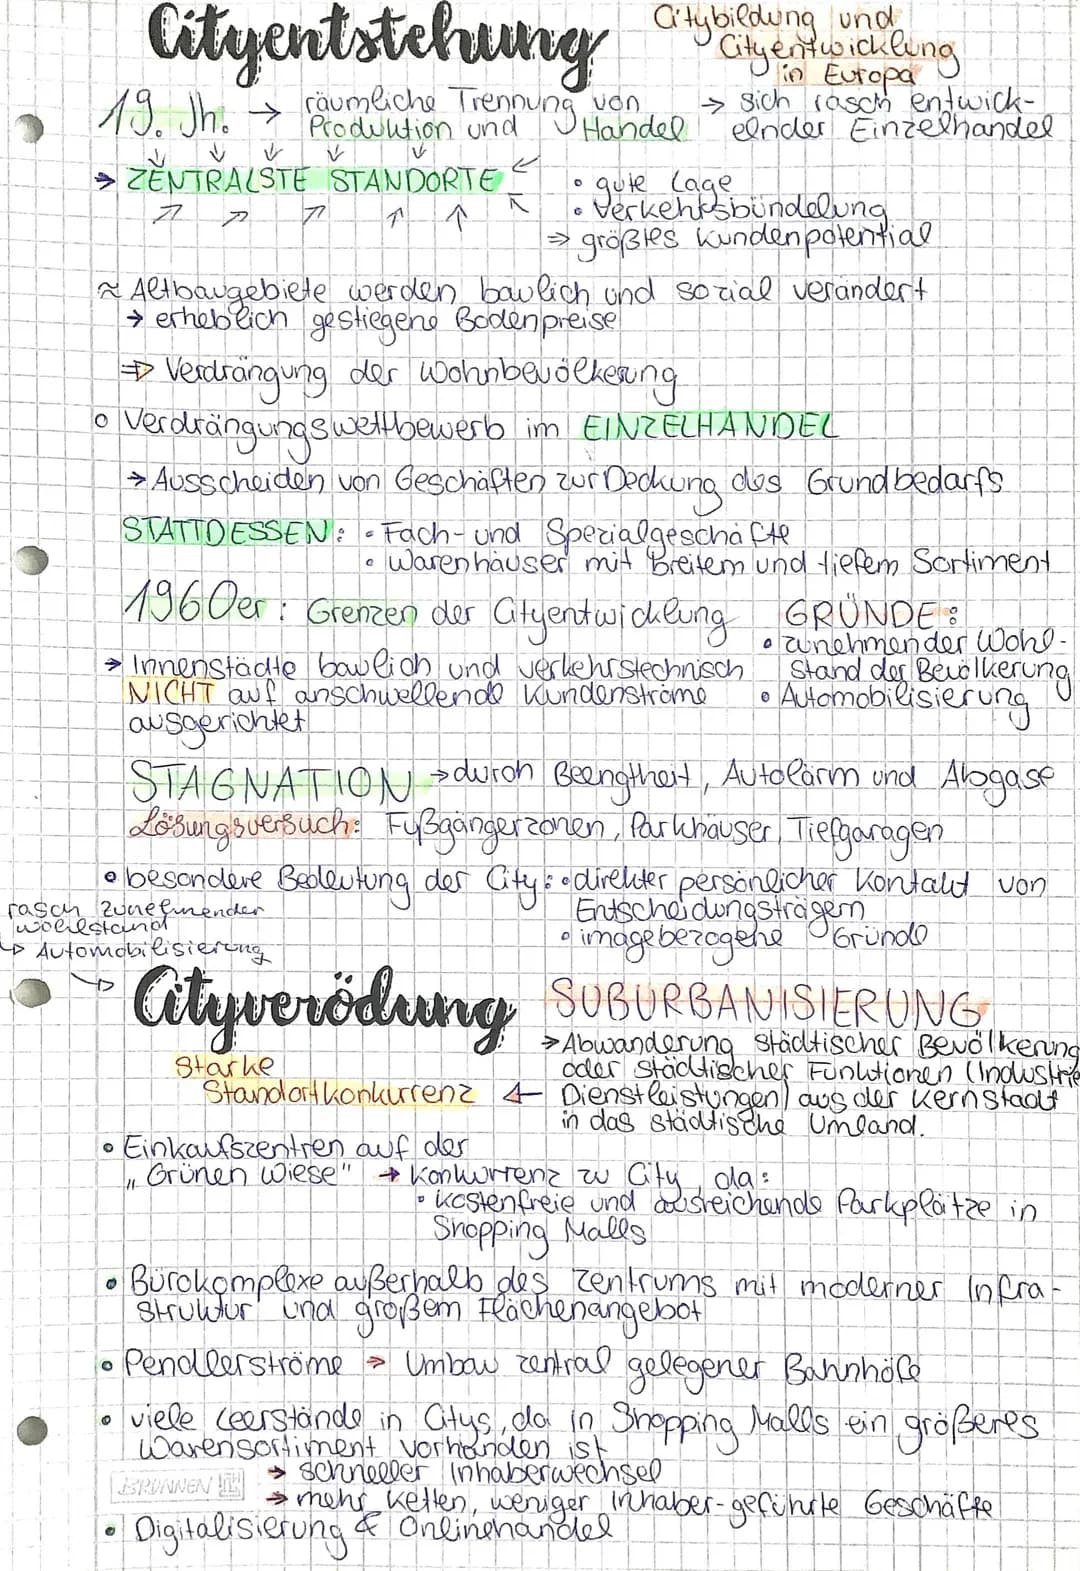 Cityentstehung
Citybildung und
Cityentwicklung
in Europa
19. Jh. → räumliche Trennung von
Produktion und Handel
→ sich rasch entwick-
elnder Einzelhandel
→ ZENTRALSTE STANDORTE
• gute Lage
• Verkehrsbündelung
⇒ größtes Kundenpotential
≈ Altbaugebiete werden baulich und sozial verändert
→ erheblich gestiegene Bodenpreise
⇒ Verdrängung der Wohnbevölkerung
○ Verdrängungswettbewerb im EINZELHANDEL
→ Ausscheiden von Geschäften zur Deckung des Grundbedarfs
STATTDESSEN: • Fach- und Spezialgeschäfte
• Warenhäuser mit breitem und tiefem Sortiment
1960er: Grenzen der Cityentwicklung
→ Innenstädte baulich und verkehrstechnisch
NICHT auf anschwellende Kundenströme
ausgerichtet
GRÜNDE:
• zunehmender Wohl-
stand der Bevölkerung
• Automobilisierung
STAGNATION → durch Beengtheit, Autolärm und Abgase
Lösungsversuch: Fußgängerzonen, Parkhäuser, Tiefgaragen
• besondere Bedeutung der City: • direkter persönlicher Kontakt von
Entscheidungsträgern
• imagebezogene Gründe
rasch zunehmender
Wohlstand
↳ Automobilisierung
↳ Cityverödung
SUBURBANISIERUNG
→ Abwanderung städtischer Bevölkerung
oder städtischer Funktionen (Industrie
Dienstleistungen) aus der Kernstadt
in das städtische Umland.
Starke
Standortkonkurrenz ←
• Einkaufszentren auf der
„Grünen Wiese" → Konkurrenz zu City, da:
• kostenfreie und ausreichende Parkplätze in
Shopping Malls
• Bürokomplexe außerhalb des Zentrums mit moderner Infra-
struktur und großem Flächenangebot
• Pendlerströme → Umbau zentral gelegener Bahnhöfe
• viele Leerstände in Citys, da in Shopping Malls ein größeres
Warensortiment vorhanden ist
→ schneller Inhaberwechsel
→ mehr Ketten, weniger inhaber-geführte Geschäfte
BRUNNEN
• Digitalisierung & Onlinehandel